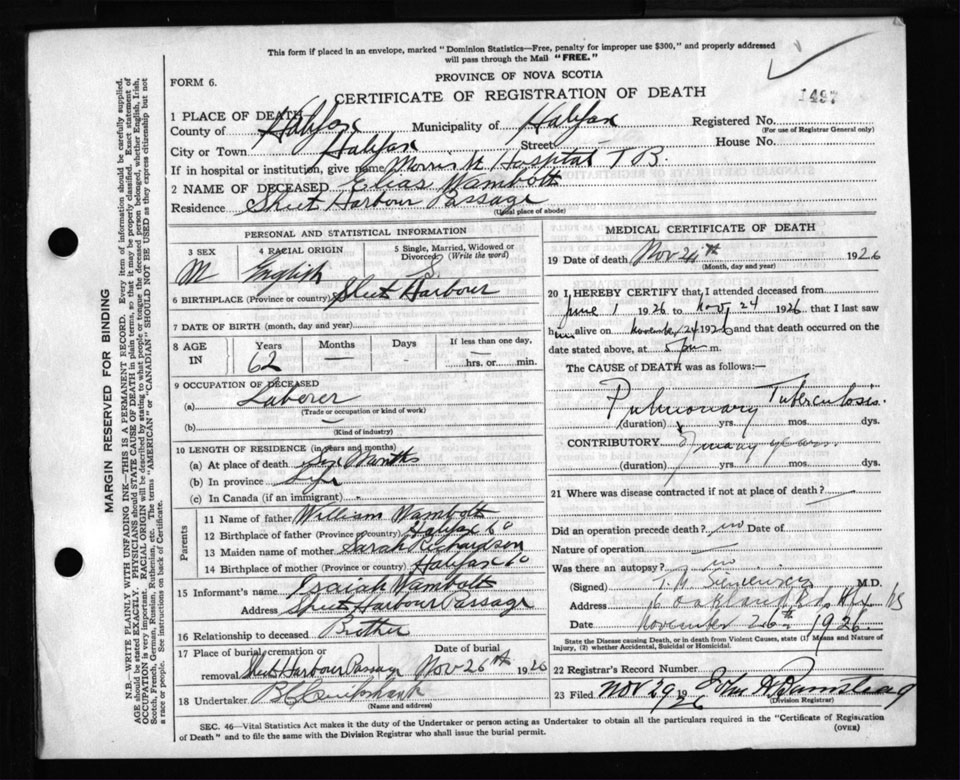 This form if placed in an envelope, marked "Dominion Statistics—Free, penalty for improper use $300," and properly addressed
will pass through the Mail "FREE."
PROVINCE OF NOVA SCOTIA
FORM 6.
CERTIFICATE OF REGISTRATION OF DEATH
1497
1 PLACE OF DEATH
County of Halifax Municipality of Halifax Registered No.
(For use of Registrar General only)
City or Town Halifax Street House No.
If in hospital or institution, give name Morris St Hospital T B.
2 NAME OF DECEASED Elias Wambolt
Residence Sheet Harbour Passage
(Usual place of abode)
PERSONAL AND STATISTICAL INFORMATION
3 SEX 4 RACIAL ORIGIN 5 Single, Married, Widowed or
Divorced (Write the word)
M English S.
6 BIRTHPLACE (Province or country) Sheet Harbour
7 DATE OF BIRTH (month, day and year)
8 AGE IN Years Months Days If less than one day,
62 — — hrs. or min.
9 OCCUPATION OF DECEASED
(a) Laberer
(Trade or occupation or kind of work)
(b) —
(Kind of industry)
10 LENGTH OF RESIDENCE (in years and months)
(a) At place of death Six Months
(b) In province Life
(c) In Canada (if an immigrant) -
Parents
11 Name of father William Wambolt
12 Birthplace of father (Province or country) Halifax Co
13 Maiden name of mother Sarah Richardson
14 Birthplace of mother (Province or country) Halifax Co
15 Informant's name Isaiah Wambolt
Address Sheet Harbour Passage
16 Relationship to deceased Brother
17 Place of burial, cremation or Date of burial
removal Sheet Harbour Passage Nov 26th 1926
18 Undertaker
(Name and address)
MEDICAL CERTIFICATE OF DEATH
19 Date of death Nov 24th 1926
(Month, day and year)
20 I HEREBY CERTIFY that I attended deceased from
June 1 1926 to Nov 24 1926 that I last saw
him alive on November 24 1926 and that death occurred on
date stated above, at 5 pm m.
The CAUSE of DEATH was as follows:—
Pulmonary Tuberculosis.
(duration) yrs. mos. dys.
CONTRIBUTORY many years.
(duration) yrs. mos. dys.
21 Where was disease contracted if not at place of death?
Did an operation precede death? no Date of
Nature of operation —
Was there an autopsy? no
(Signed) M.D.
Address Oakland Rd, Hfx NS
Date November 26th 1926.
State the Disease causing Death, or in death from Violent Causes, state (1) Means and Nature of
Injury, (2) whether Accidental, Suicidal or Homicidal.
22 Registrar's Record Number
23 Filed Nov 29 1926 John A
(Division Registrar)
SEC. 46—Vital Statistics Act makes it the duty of the Undertaker or person acting as Undertaker to obtain all the particulars required in the "Certificate of Registration
of Death" and to file the same with the Division Registrar who shall issue the burial permit.
(OVER)
MARGIN RESERVED FOR BINDING
N.B.—WRITE PLAINLY WITH UNFADING INK—THIS IS A PERMANENT RECORD. Every item of information should be carefully supplied.
AGE should be stated EXACTLY. PHYSICIANS should STATE CAUSE OF DEATH in plain terms, so that it may be properly classified. Exact statement of
OCCUPATION is very important. RACIAL ORIGIN will be described by stating to what people or tongue the deceased person belonged, whether English, Irish,
Scotch, French, German, Russian, Ruthenian, etc. The terms "AMERICAN" or "CANADIAN" SHOULD NOT BE USED as they express citizenship but not
a race or people. See instructions on back of Certificate.